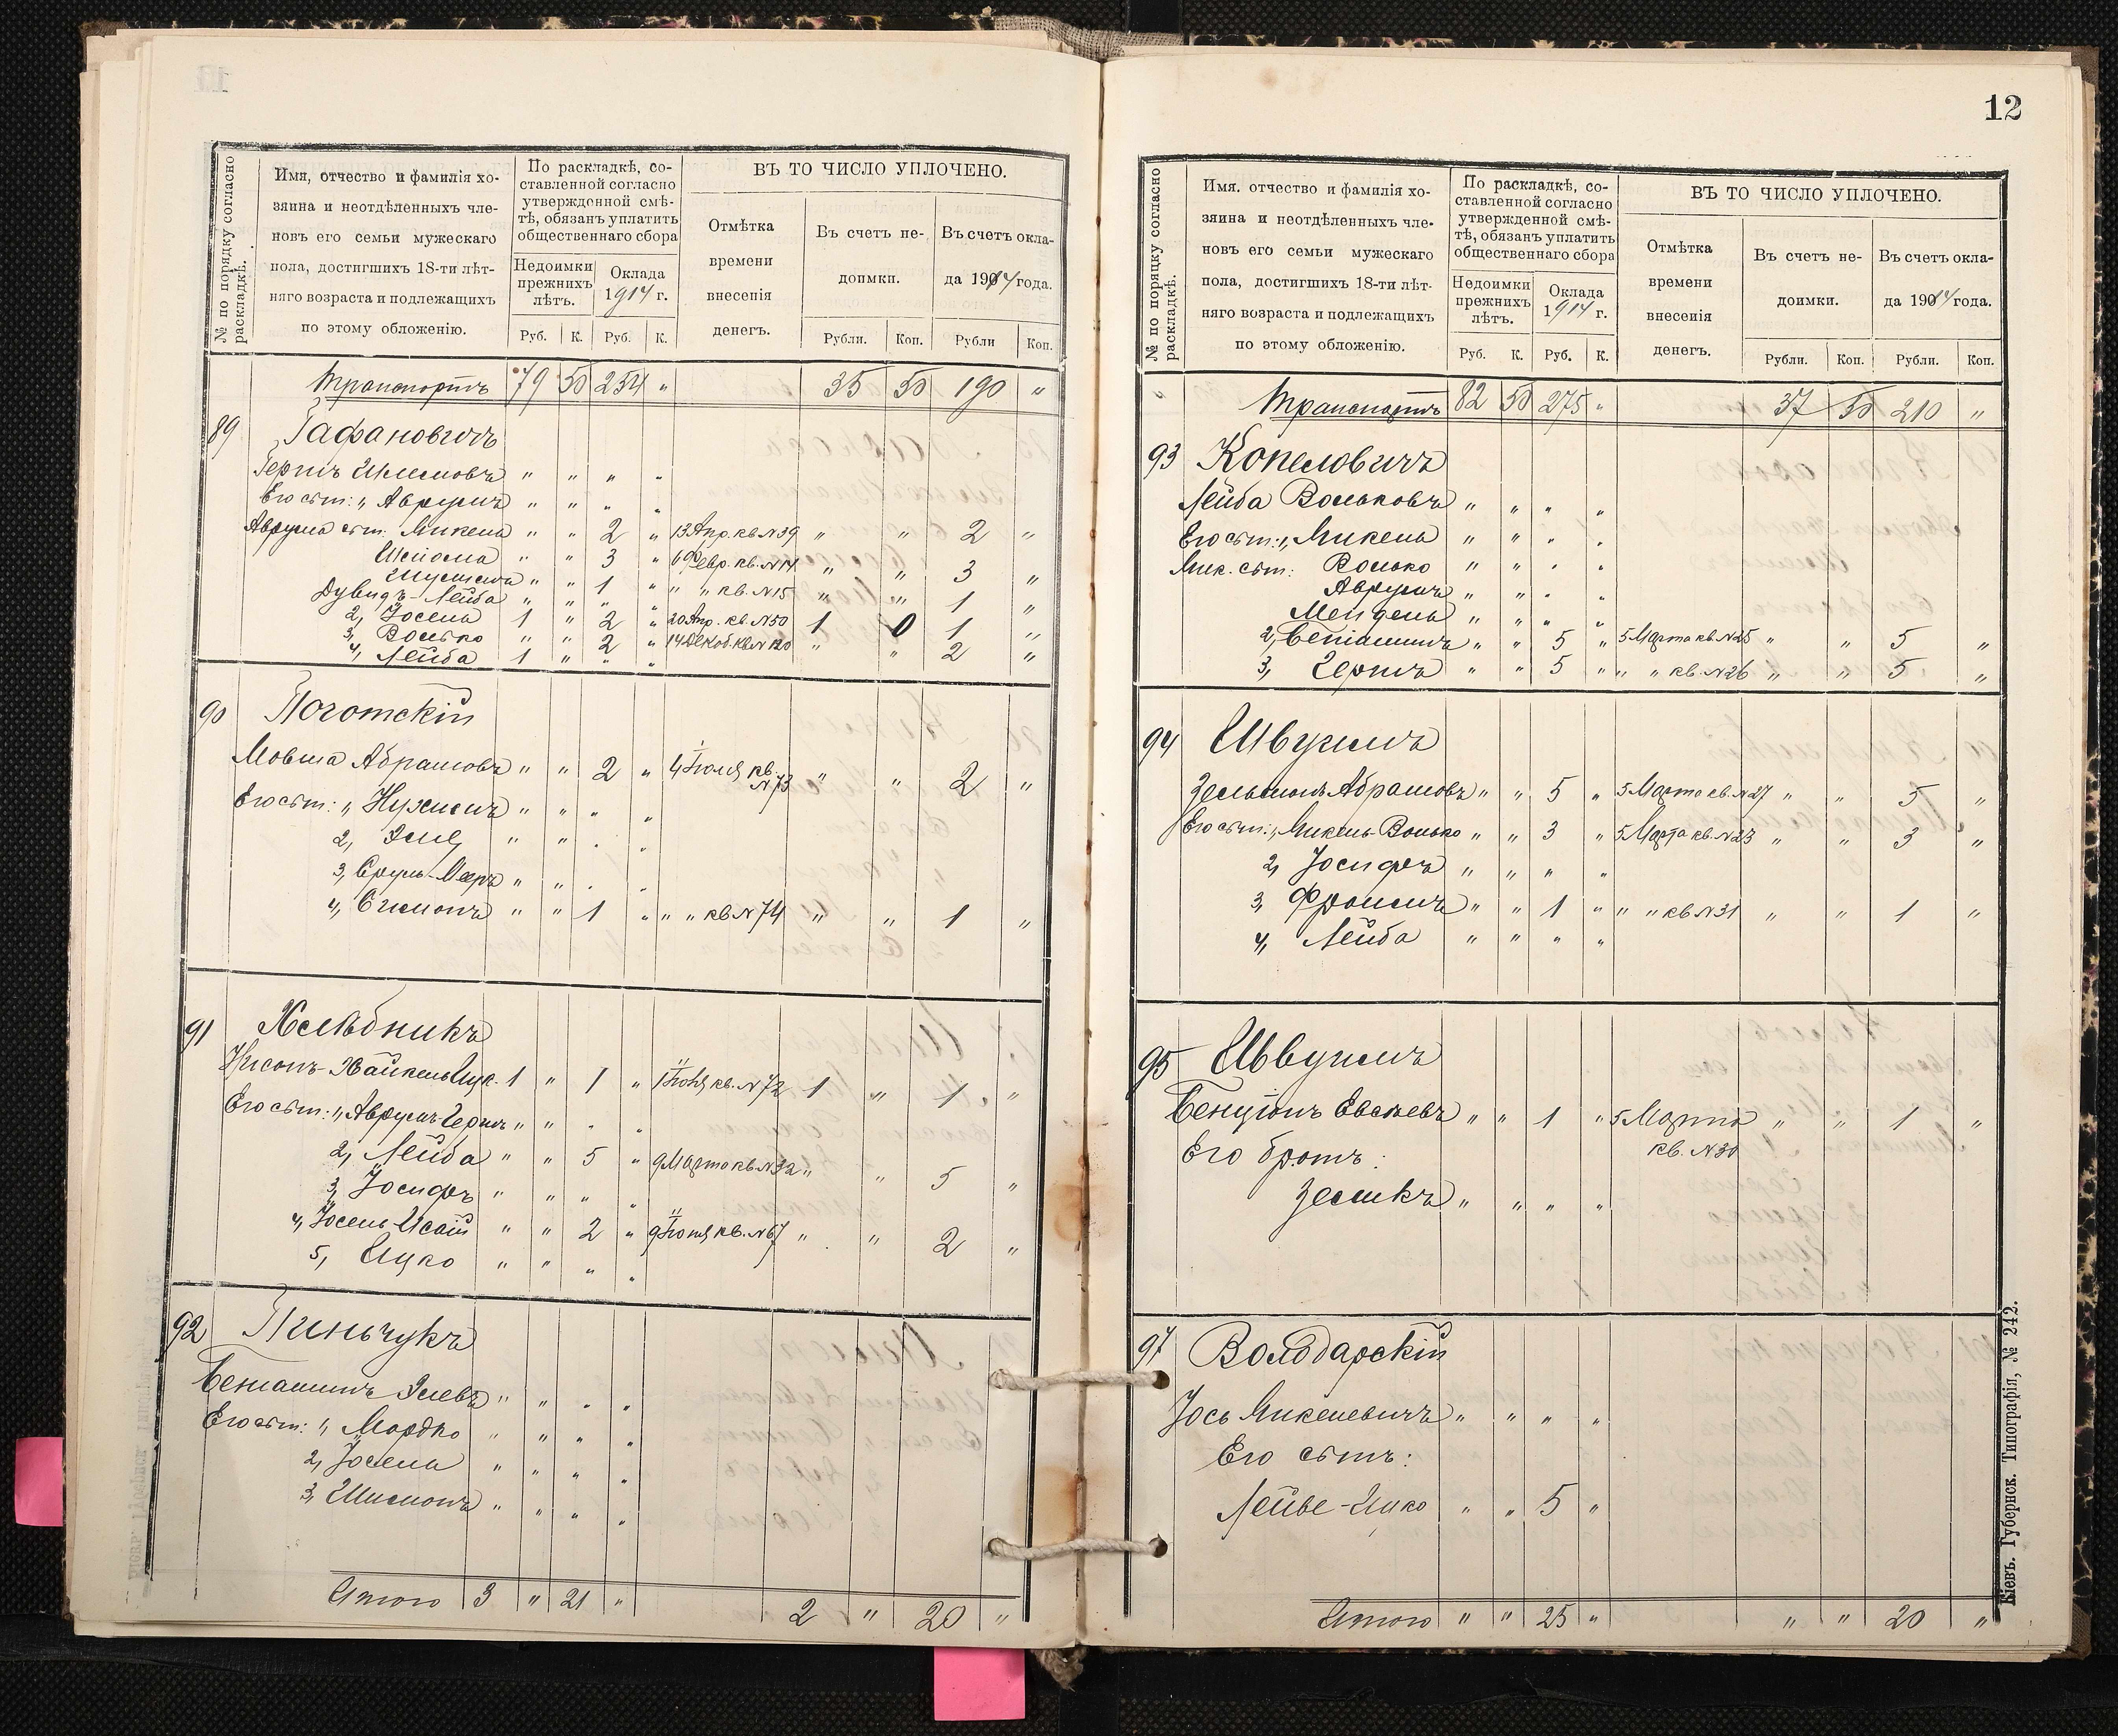 № по порядку согласно раскладкѣ.
Имя, отчество и фамилія хо-
зяина и неотдѣленныхъ чле-
новъ его семьи мужескаго
пола, достигшихъ 18-ти лѣт-
няго возраста и подлежащихъ
по этому обложенію.
По раскладкѣ, со-
ставленной согласно
утвержденной смѣ-
тѣ, обязанъ уплатить
общественнаго сбора
Недоимки прежнихъ лѣтъ.
Оклада 1914 г.
Руб. К. Руб. К.
ВЪ ТО ЧИСЛО УПЛОЧЕНО.
Отмѣтка
времени
внесенія
денегъ.
Въ счетъ не-
доимки.
Въ счетъ окла-
да 1914 года.
Рубли. Коп. Рубли Коп.
Транспортъ 79 50 254 " 35 50 190 "
89 Гафановичъ
Гершъ Шлемовъ " " " "
Его сын: 1, Аврумъ " " " "
Аврума сын: Микель " " 2 " 13 Апр. кв. N 39 " " 2 "
Шлёма " " 3 " 6 Февр. кв. N 14 " " 3 "
" " 1 " " " кв. N 15 " " 1 "
Дувидъ-Лейба " " " "
2, Іосель 1 " 2 " 20 Апр. кв. N 50 1 0 1 "
3, Волько " " 2 " 14 Декаб. кв. N 120 " " 2 "
4, Лейба 1 " " "
90 Поготскій
Мовша Абрамовъ " " 2 " 4 Іюля кв. N 73 " " 2 "
Его сын: 1, Нухимъ " " " "
2, Элё " " " "
3, Сруль-Мееръ " " " "
4, Симонъ " " 1 " " " кв N 74 " " 1 "
91 Хлѣбникъ
Нисонъ-Хайкель Ицк. 1 " 1 " 1 Іюля кв. N 72 1 " 1 "
Его сын: 1, Аврумъ-Герш " " " "
2, Лейба " " 5 " 9 Марта кв. N 32 " " 5 "
3, Іосифъ " " " "
4, Іосель-Исай " " 2 " 9 Іюня кв. N 67 " " 2 "
5, Ицко " " " "
92 Пиньчукъ
Беніаминъ Элевъ " " " "
Его сын: 1, Мордко " " " "
2, Іосель " " " "
3, Шимонъ " " " "
Итого 3 " 21 " 2 " 20 "
12
№ по порядку согласно раскладкѣ.
Имя. отчество и фамилія хо-
зяина и неотдѣленныхъ чле-
новъ его семьи мужескаго
пола, достигшихъ 18-ти лѣт-
няго возраста и подлежащихъ
по этому обложенію.
По раскладкѣ, со-
ставленной согласно
утвержденной смѣ-
тѣ, обязанъ уплатить
общественнаго сбора
Недоимки прежнихъ лѣтъ.
Оклада 1914 г.
Руб. К. Руб. К.
ВЪ ТО ЧИСЛО УПЛОЧЕНО.
Отмѣтка
времени
внесенія
денегъ.
Въ счетъ не-
доимки.
Въ счетъ окла-
да 1914 года.
Рубли. Коп. Рубли. Коп.
Транспортъ 82 50 275 " 37 50 210 "
93 Копеловичъ
Лейба Вольковъ " " " "
Его сын: 1, Микель " " " "
Мик. сын: Волько " " " "
Аврумъ " " " "
Мендель " " " "
2, Беніаминъ " " 5 " 5 Марта кв. N 25 " " 5 "
3, Гершъ " " 5 " " " кв. N 26 " " 5 "
94 Швухимъ
Зельманъ Абрамовъ " " 5 " 5 Марта кв. N 27 " " 5 "
Его сын: 1, Микель-Волько " " 3 " 5 Марта кв. N 23 " " 3 "
2, Іосифъ " " " "
3, Фроимъ " " 1 " " " кв N 31 " " 1 "
4, Лейба " " " "
95 Швухимъ
Бенціонъ Евсѣевъ " " 1 " 5 Марта " " 1 "
Его братъ: кв. N 30
Зеликъ " " " "
97 Володарскій
Іось Микелевичъ " " " "
Его сынъ:
Лейве-Ицко " " 5 "
Итого " " 25 " " " 20 "
Кіевъ. Губернск. Типографія, № 242.